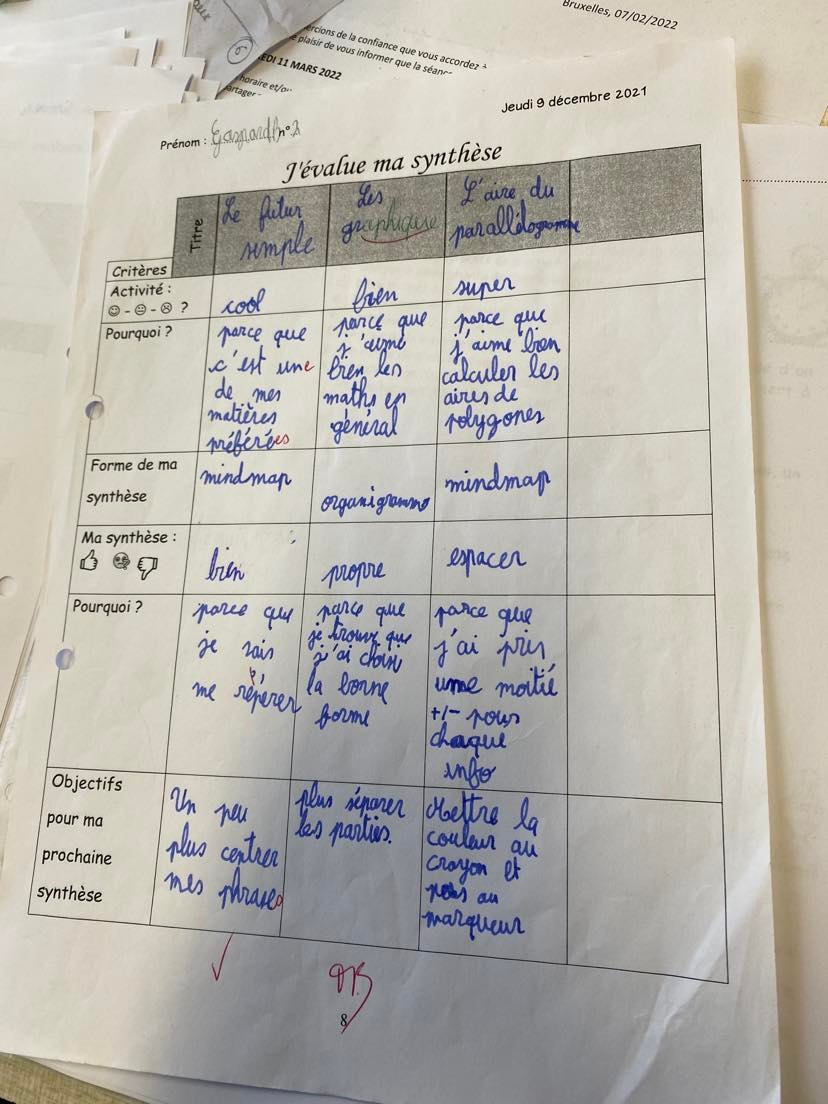 Bruxelles, 07/02/2022
ercions de la confiance que vous accordez à
e plaisir de vous informer que la séanc
EDI 11 MARS 2022
horaire et/ou
artager
6
Jeudi 9 décembre 2021
Prénom : Gaspard n°
J'évalue ma synthèse
Titre
Le futur
simple
Les
graphique
L'aire du
parallélogramme
Critères
Activité :
☺ - 😐 - ☹ ?
cool
bien
super
Pourquoi ?
parce que
c'est une
de mes
matières
préférées
parce que
j'aime
bien les
maths en
général
parce que
j'aime bien
calculer les
aires de
polygones
Forme de ma
synthèse
mindmap
organigramme
mindmap
Ma synthèse :
bien
propre
espacer
Pourquoi ?
parce que
je sais
me répérer
parce que
je trouve que
j'ai choisi
la bonne
forme
parce que
j'ai pris
une moitié
+/- pour
chaque
info
Objectifs
pour ma
prochaine
synthèse
Un peu
plus centrer
mes phrases
plus séparer
les parties.
Mettre la
couleur au
crayon et
pas au
marqueur
TB
8